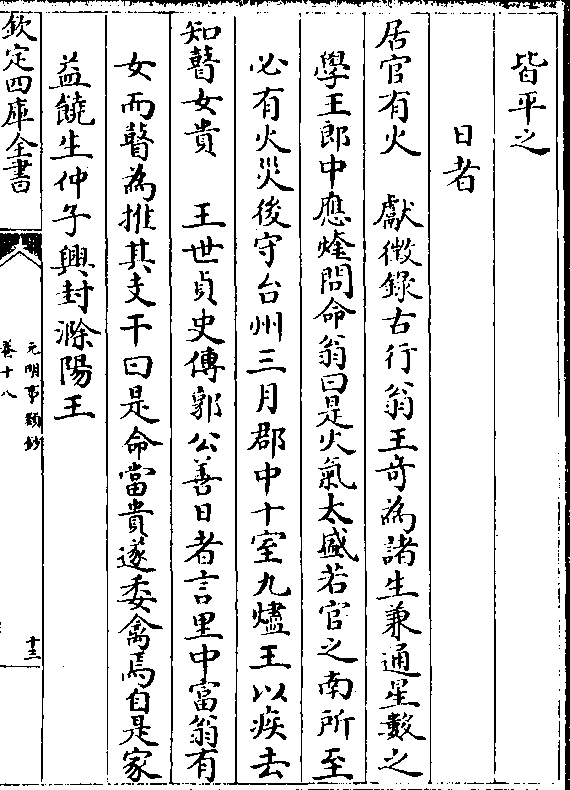 皆平之
日者
居官有火　獻徵錄古行翁王奇為諸生兼通星數之
學王郎中應煃問命翁曰是火氣太盛若官之南所至
必有火災後守台州三月郡中十室九燼王以疾去
知瞽女貴　王世貞史傳郭公善日者言里中富翁有
女而瞽為推其支干曰是命當貴遂委禽焉自是家
益饒生仲子興封滁陽王
欽定四庫全書
元明事類鈔
卷十八
十三